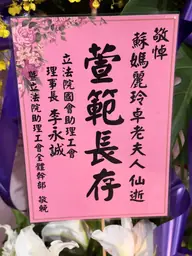 敬悼
蘇媽麗玲卓老夫人仙逝
萱範長存
立法院國會助理工會
理事長 李永誠
暨立法院助理工會全體幹部 敬輓